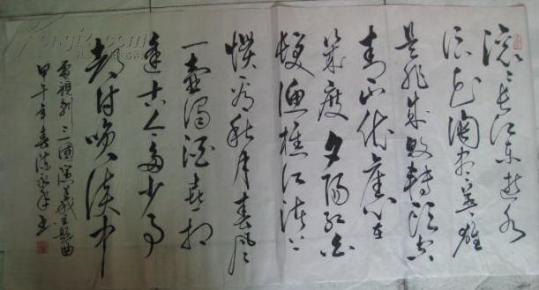 滚滚长江东逝水
浪花淘尽英雄
是非成败转头空
青山依旧在
几度夕阳红白
发渔樵江渚上
惯看秋月春风
一壶浊酒喜相
逢古今多少事
都付笑谈中
電視剧三國演義主题曲
甲午年春
书